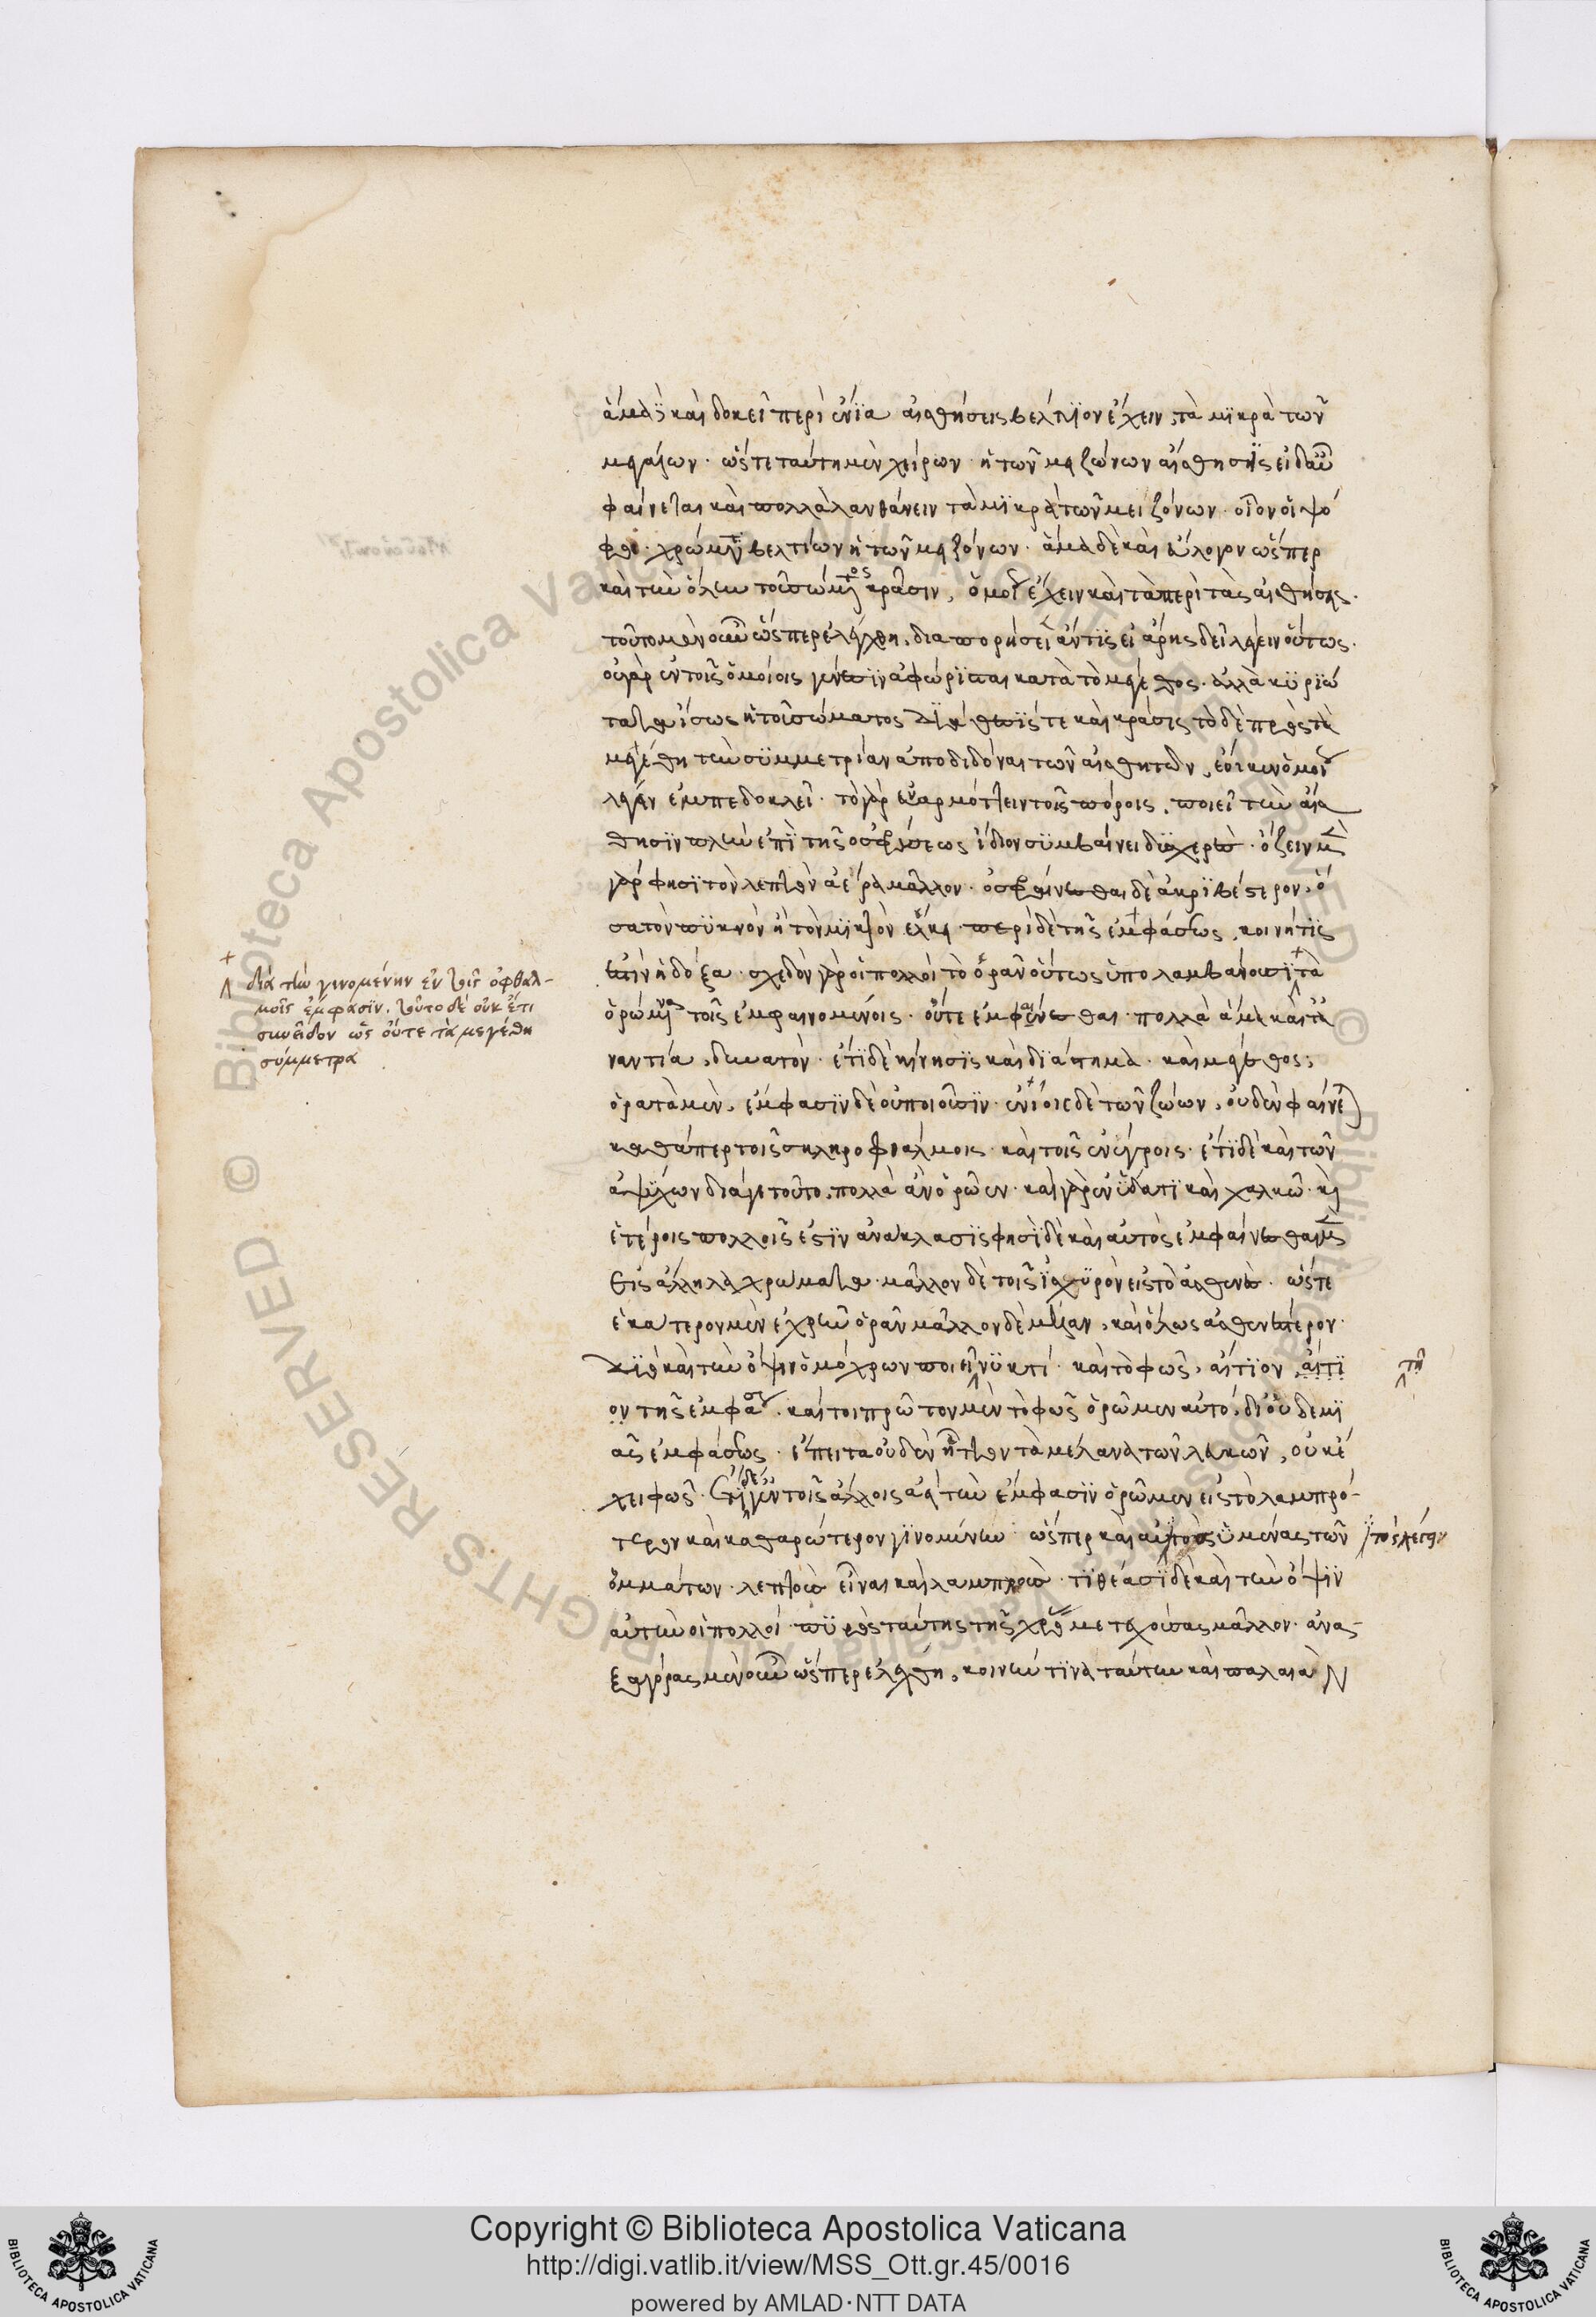 ἅμα δὲ καὶ δοκεῖ περὶ ἐνΐα αἰσθήσεις βέλτϊον ἔχειν τὰ μϊκρὰ τῶν
μεγάλων· ὥστε ταύτη μὲν χείρων ἡ τῶν μειζόνων αἴσθησϊς εἰ δ' αὖ
φαίνεται καὶ πολλὰ λανθάνειν τὰ μϊκρὰ τῶν μειζόνων· οἷον οἱ ψό
βελτίων ἡ τῶν μειζόνων· ἅμα δὲ καὶ εὔλογον ὥσπερ
καὶ τὴν ὅλην τοῦ σώματος κρᾶσιν, ὁμοί ἔχειν καὶ τὰ περὶ τὰς αἰσθήσεις·
τοῦτο μὲν οὖν ὥσπερ ἐλέχθη, διαπορήσει ἄν τϊς εἰ ἄρης δεῖ λέγειν οὕτως·
οὐ γὰρ ἐν τοῖς ὁμοίοις γένεσϊν ἀφώρϊσται κατὰ τὸ μέγεθος· ἀλλὰ κϋρϊώ
τατα ἴσως ἡ τοῦ σώματος δϊάθεσϊς τε καὶ κρᾶσις τὸ δὲ πρὸς τὰ
μεγέθη τὴν σϋμμετρίαν ἀποδιδόναι τῶν αἰσθητῶν, ἔοικεν ὁμοί
λέγειν ἐμπεδοκλεῖ· τὸ γὰρ ἐναρμόττειν τοῖς πόροις, ποιεῖ τὴν αἴσ
θησϊν πλὴν ἐπὶ τῆς ὀσφρήσεως ἴδιον σϋμβαίνει δϋσχερές· ὄζειν μὲν
γάρ φησϊ τὸν λεπτὸν ἀέρα μᾶλλον· ὀσφραίνεσθαι δὲ ἀκρϊβέστερον, ὅ
σα τὸν πϋκνὸν ἢ τὸν μϊκρὸν ἕλκει· περὶ δὲ τῆς ἐμφάσεως, κοινή τϊς
ἐστὶν ἡ δόξα· σχεδὸν γὰρ οἱ πολλοί τὸ ὁρᾶν οὕτως ὑπολαμβάνουσϊ τὰ
ὁρώμενα τοῖς ἐμφαινομένοις· οὔτε ἐμφαίνεσθαι πολλὰ ἅμα καὶ τὰ
ναντία, δυνατὸν· ἔτϊ δὲ κίνησϊς καὶ δϊάστημα· καὶ μέγεθος,
ὁρατὰ μὲν, ἔμφασϊν δὲ οὐ ποιοῦσϊν· ἐνίοις δὲ τῶν ζώων, οὐδὲν φαίνε
καθάπερ τοῖς σκληροφθάλμοις· καὶ τοῖς ἐνύγροις· ἔτϊ δὲ καὶ τῶν
ἀψύχων διά γε τοῦτο πολλὰ ἂν ὁρῶεν· καὶ γὰρ ἐν ὕδατϊ καὶ χαλκῶ καὶ
ἑτέροις πολλοῖς ἐστϊν ἀνάκλασϊς φησϊ δὲ καὶ αὐτὸς ἐμφαίνεσθαι μὲν
εἰς ἄλληλα χρώματα· μᾶλλον δὲ τοῖς ἰσχϋρὸν εἰς τὸ ἀσθενές· ὥστε
ἑκάτερον μὲν ἐχρῆν ὁρᾶν μᾶλλον δὲ μέλαν, καὶ ὅλως ἀσθενέστερον·
δϊὸ καὶ τὴν ὄψιν ὁμόχρων ποιεῖ νϋκτί· καὶ τὸ φῶς, αἴτϊον, αἴτϊ
ον τῆς ἐμφάσ. καίτοι πρῶτον μὲν τὸ φῶς ὁρῶμεν αὐτό, δι' οὐδεμϊ
ᾶς ἐμφάσεως· ἔπειτα οὐδὲν ἧττον τὰ μέλανα τῶν λευκῶν, οὐκ ἔ
χει φῶς· ἔτϊ δὲ ἐν τοῖς ἄλλοις ἀεὶ τὴν ἔμφασϊν ὁρῶμεν εἰς τὸ λαμπρό-
τερον καὶ καθαρώτερον γϊνομένην· ὥσπερ καὶ αὐτὸς ὑμένας τῶν
ὀμμάτων λεπτοὺς εἶναι καὶ λαμπροὺς· τϊθέασϊ δὲ καὶ τὴν ὄψϊν
αὐτὴν οἱ πολλοί πϋρὸς ταύτης τῆς χρόας μετεχούσας μᾶλλον· ἀνα-
ξαγόρας μὲν οὖν ὥσπερ ἐλέχθη, κοινήν τϊνα ταύτην καὶ παλαιὰν
διὰ τὴν γινομένην ἐν τοῖς ὀφθαλ-
μοῖς ἔμφάσϊν. τοῦτο δὲ οὐκ ἔτι
συνεῖδον ὡς οὔτε τὰ μεγέθη
σύμμετρα
τῆ
Copyright © Biblioteca Apostolica Vaticana
http://digi.vatlib.it/view/MSS_Ott.gr.45/0016
powered by AMLAD·NTT DATA
BIBLIOTECA APOSTOLICA VATICANA
BIBLIOTECA APOSTOLICA VATICANA